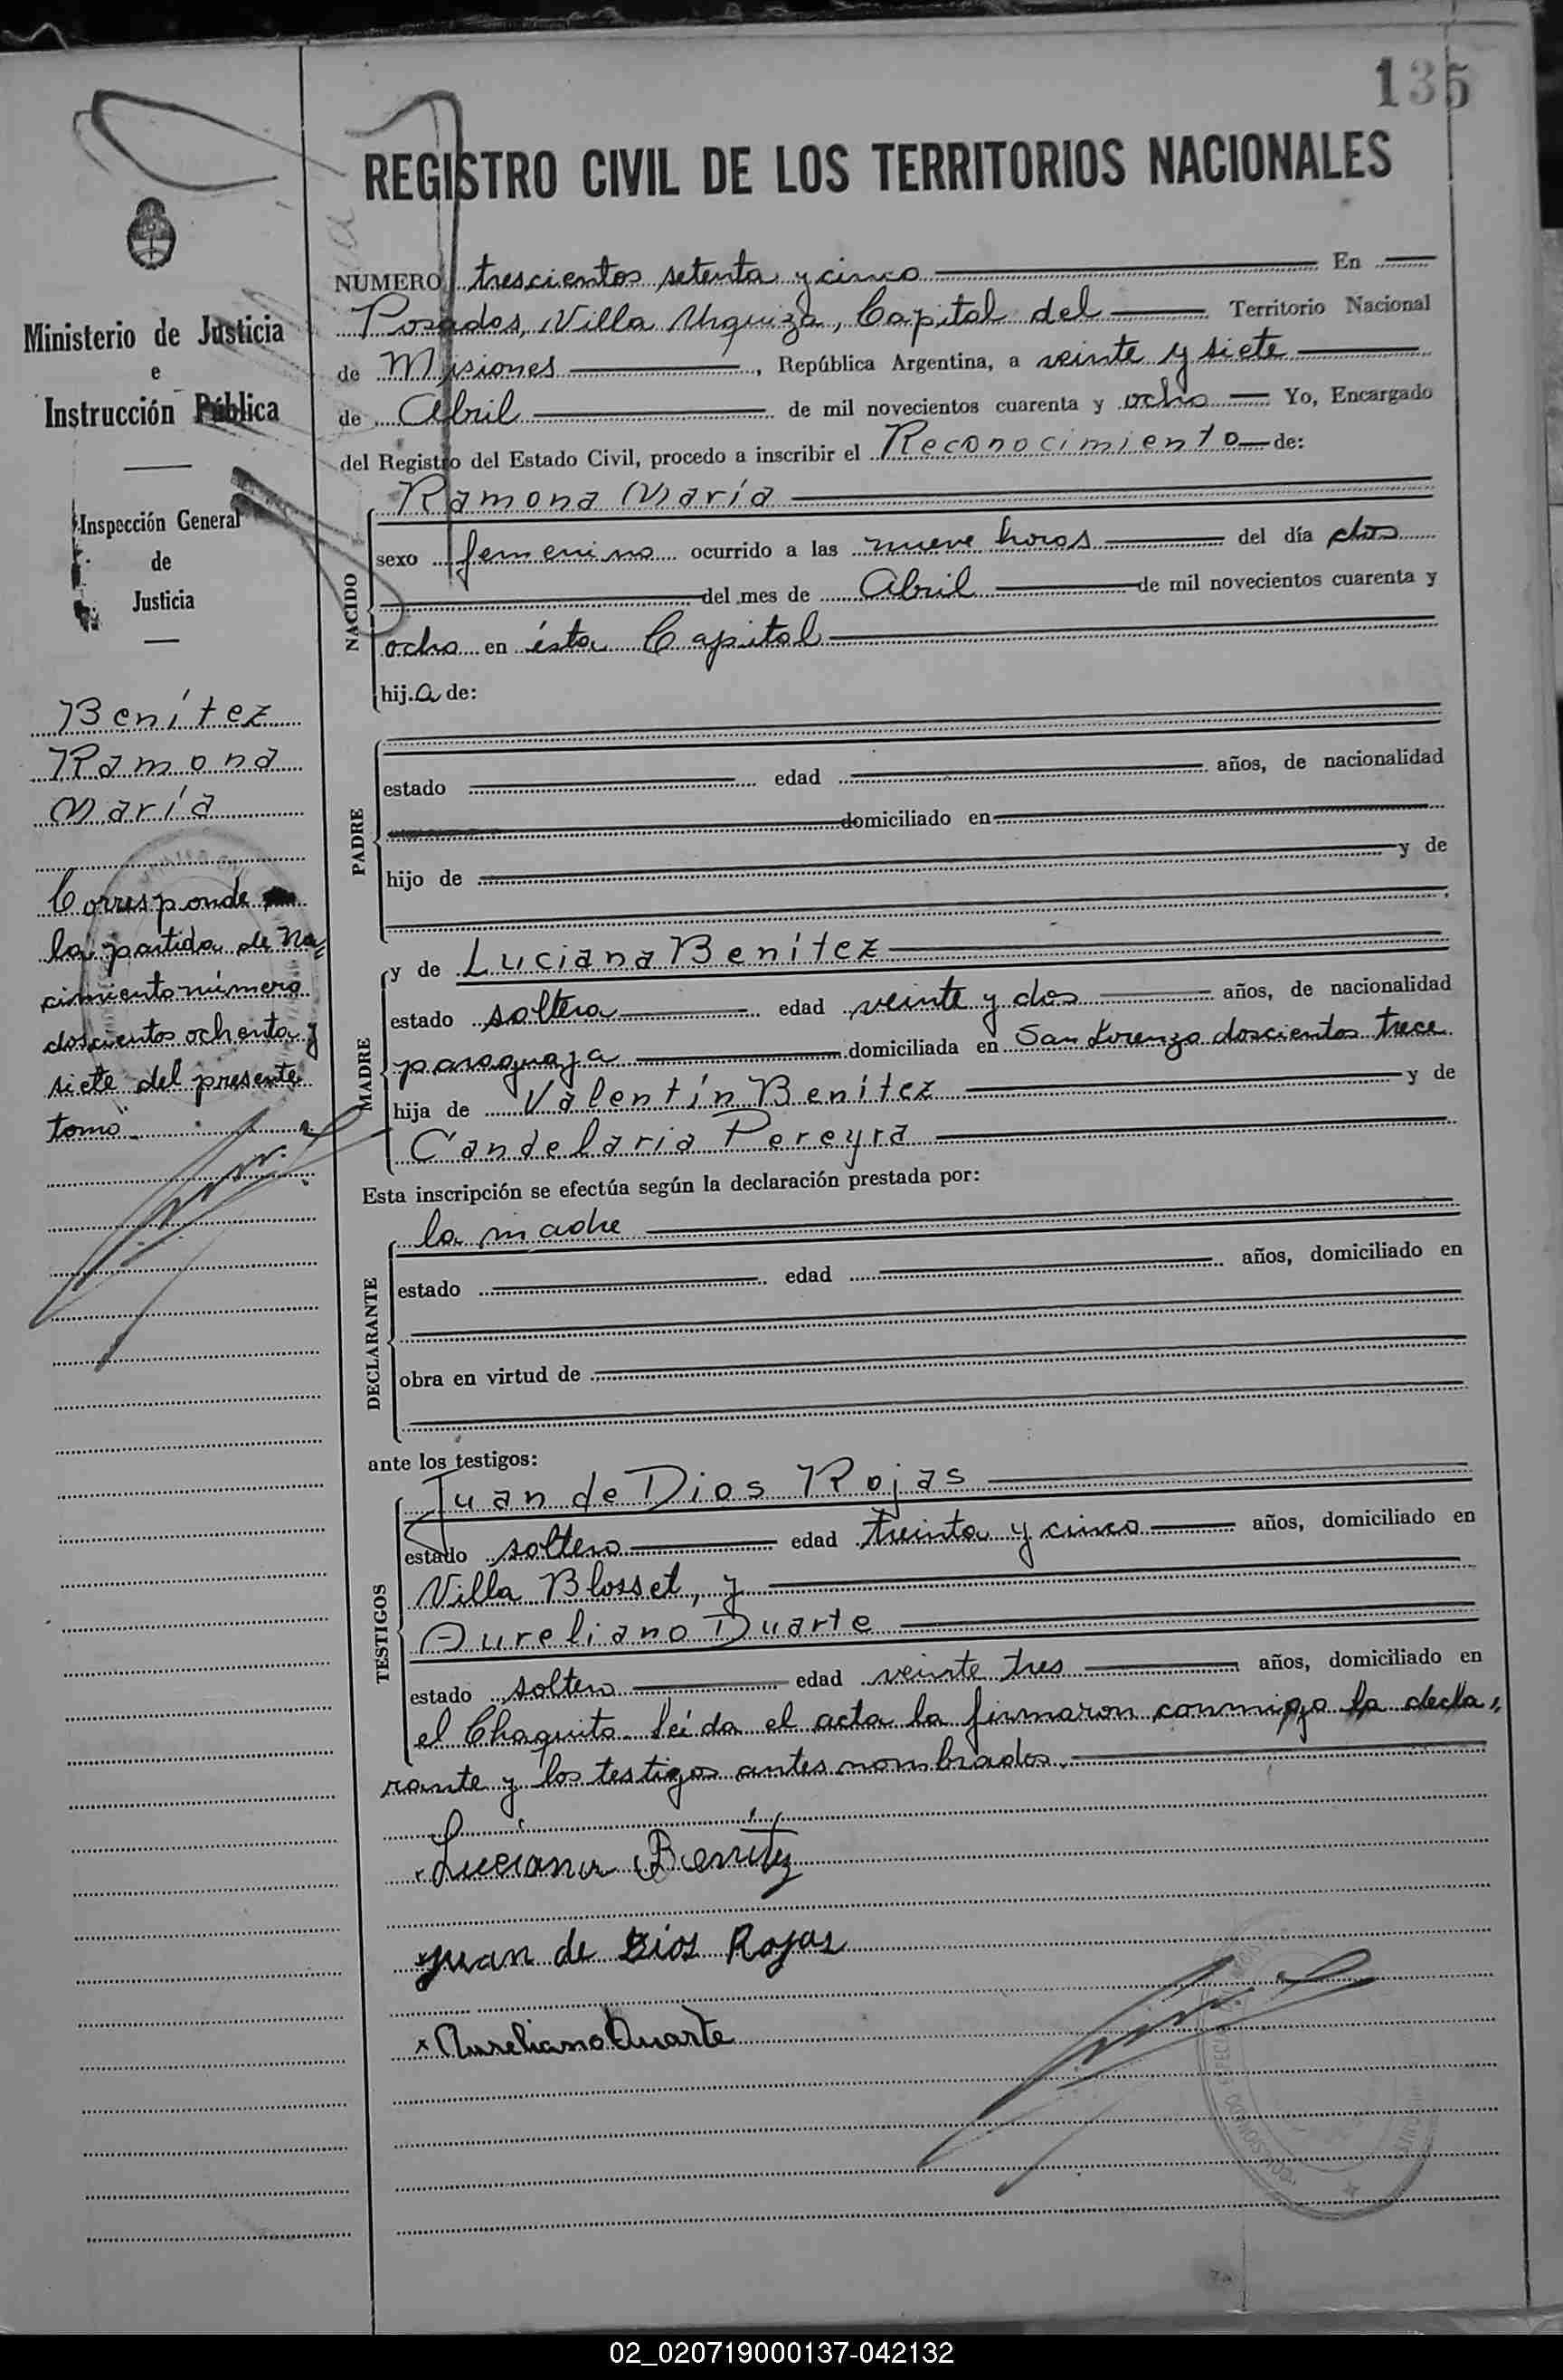 135
REGISTRO CIVIL DE LOS TERRITORIOS NACIONALES
Ministerio de Justicia
e
Instrucción Pública
Inspección General
de
Justicia
Benítez
Ramona
María
Corresponde
la partida de Na=
cimiento número
doscientos ochenta y
siete del presente
tomo.
NUMERO trescientos setenta y cinco En
Posadas, Villa Urquiza, Capital del Territorio Nacional
de Misiones, República Argentina, a veinte y siete
de Abril de mil novecientos cuarenta y ocho Yo, Encargado
del Registro del Estado Civil, procedo a inscribir el Reconocimiento de:
NACIDO
Ramona María
sexo femenino ocurrido a las nueve horas del día dos
del mes de Abril de mil novecientos cuarenta y
ocho en ésta Capital
hija de:
PADRE
estado edad años, de nacionalidad
domiciliado en
hijo de y de
MADRE
y de Luciana Benítez
estado soltera edad veinte y dos años, de nacionalidad
paraguaya domiciliada en San Lorenzo doscientos trece
hija de Valentín Benítez y de
Candelaria Pereyra
Esta inscripción se efectúa según la declaración prestada por:
DECLARANTE
la madre
estado edad años, domiciliado en
obra en virtud de
ante los testigos:
TESTIGOS
Juan de Dios Rojas
estado soltero edad treinta y cinco años, domiciliado en
Villa Blosset, y
Aureliano Duarte
estado soltero edad veinte tres años, domiciliado en
el Chaquito. Leída el acta la firmaron conmigo la decla=
rante y los testigos antes nombrados.
Luciana Benítez
Juan de Dios Rojas
x Aureliano Duarte
02_020719000137-042132